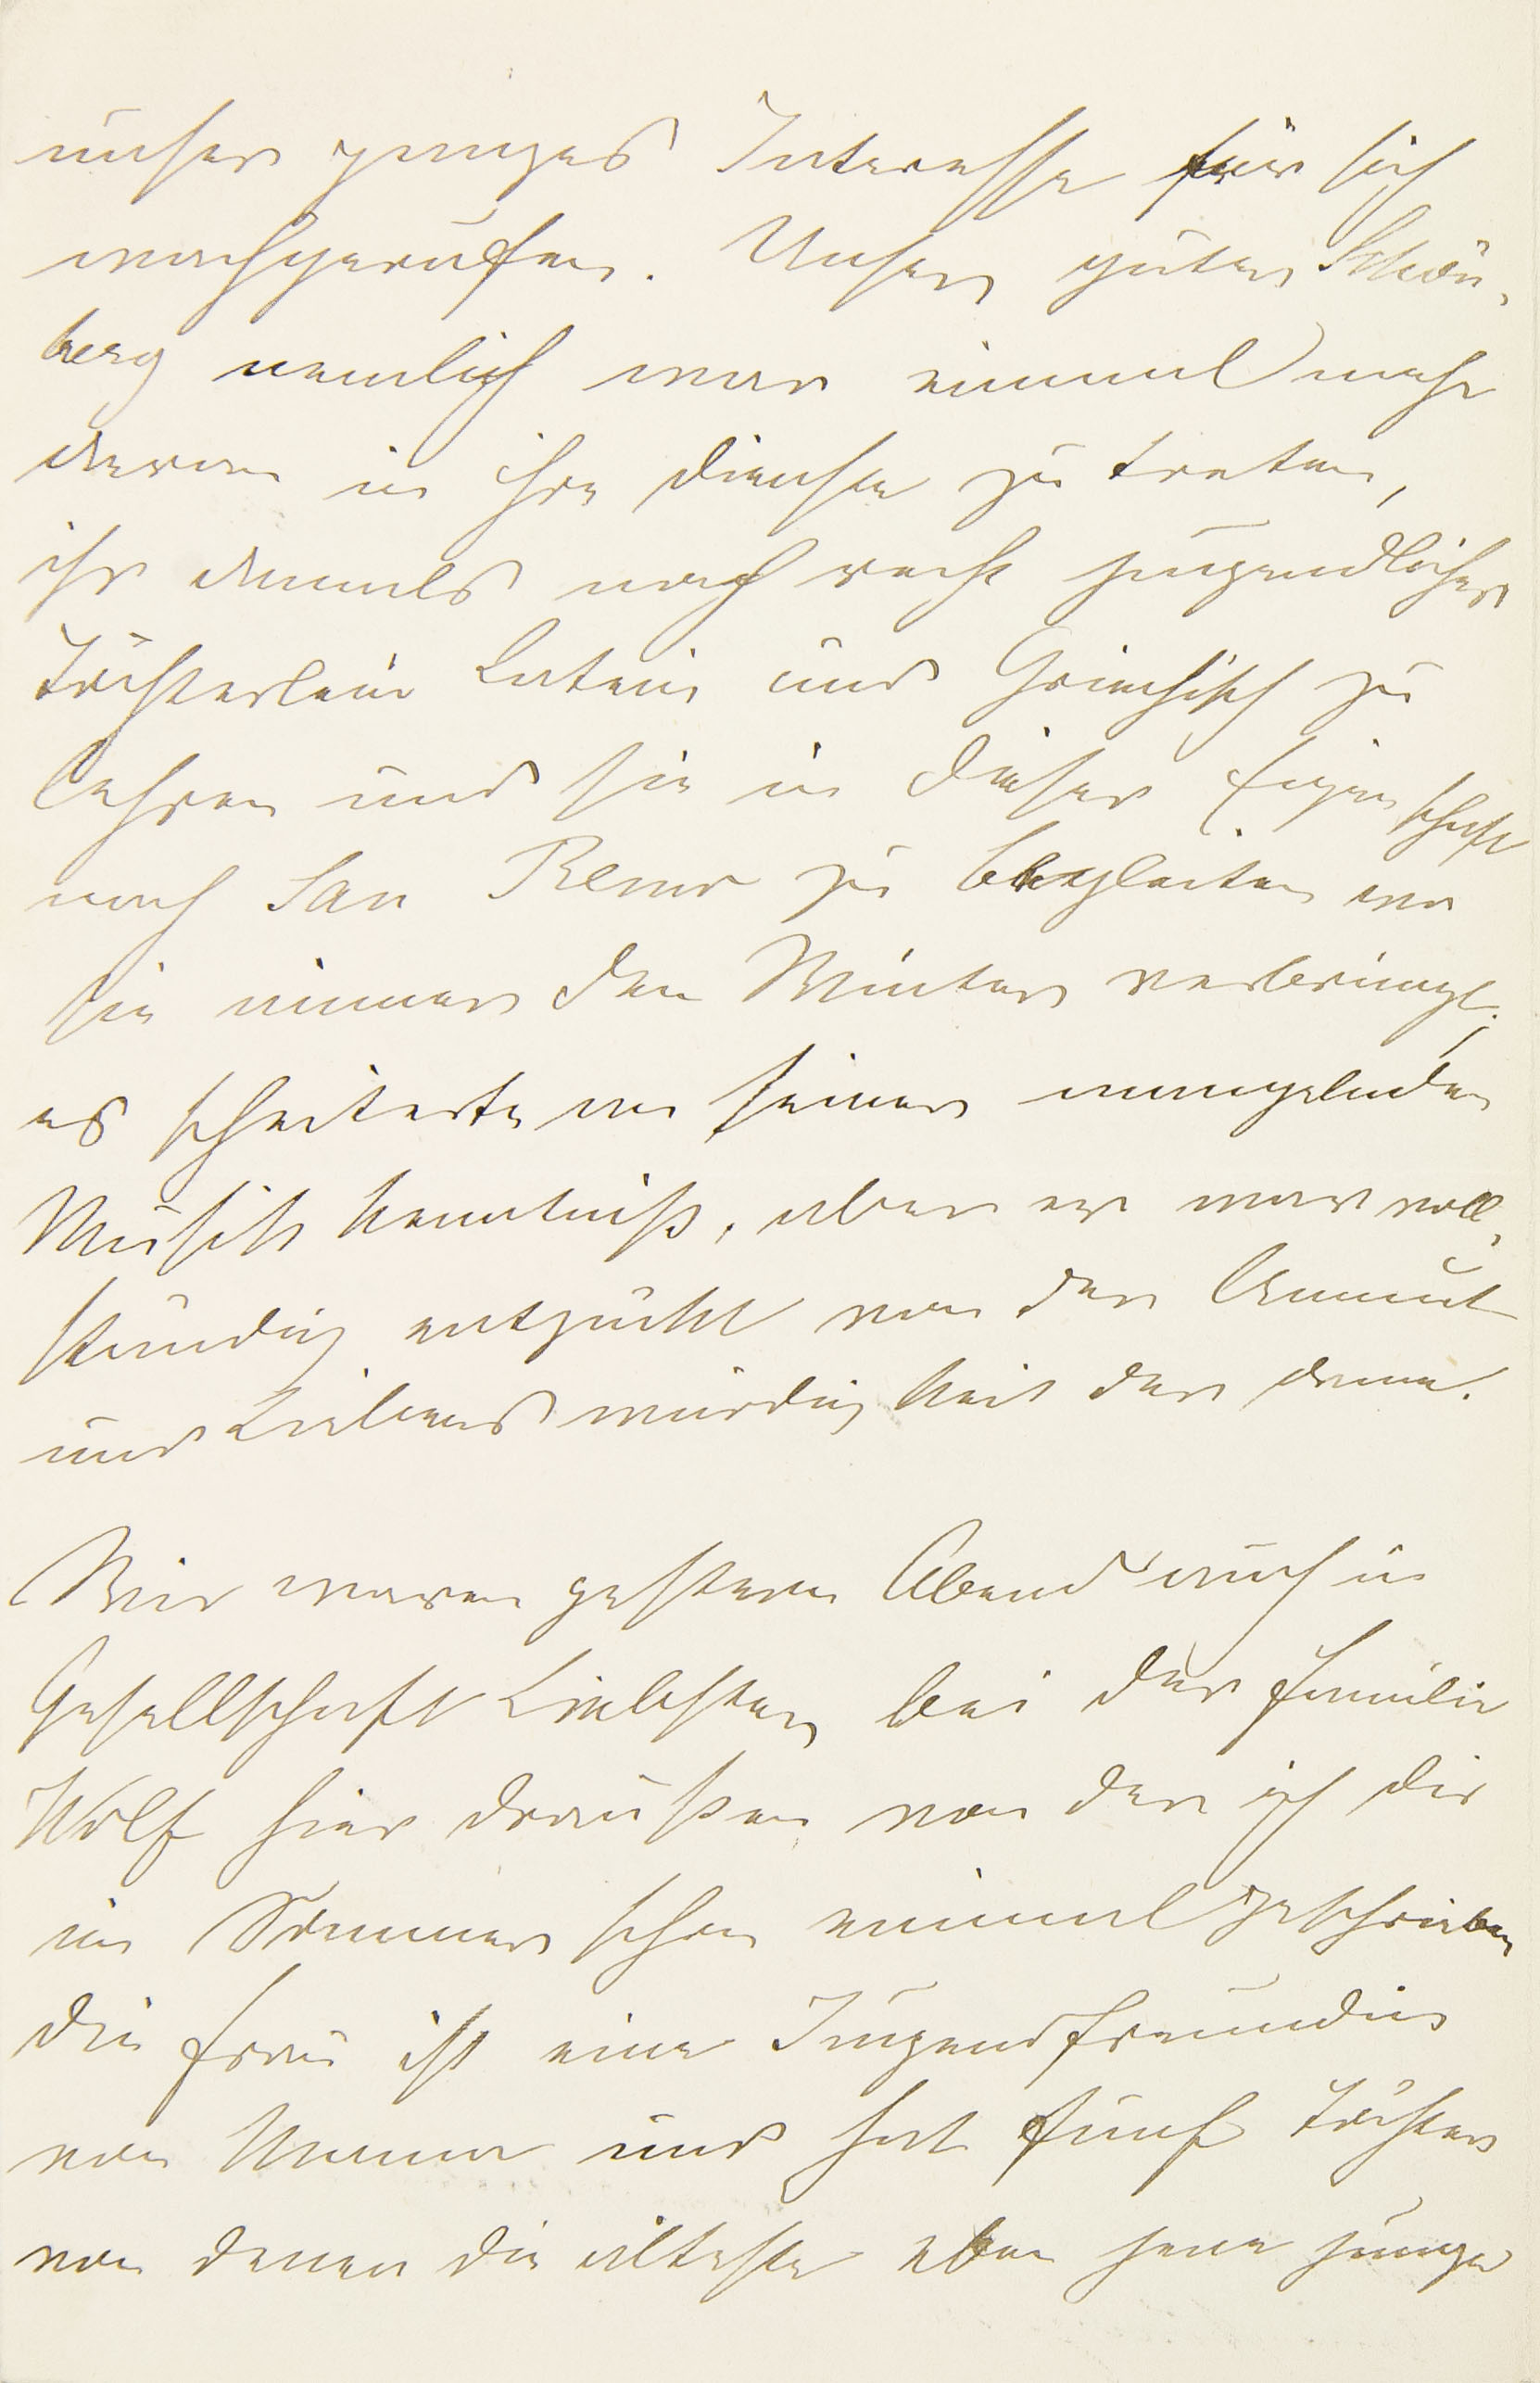 unser ganzes Interesse für sich
wachgerufen. Unser guter Schön-
berg nemlich war einmal nahe
daran in ihre Dienste zu treten,
ihr damals noch recht jugendliches
Töchterlein Latein und Griechisch zu
lehren und sie in dieser Eigenschaft
nach San Remo zu begleiten wo
sie immer den Winter verbringt;
es scheiterte an seiner mangelnden
Musik kenntniß, aber er war voll-
ständig entzückt von der Anmut
und Liebenswürdigkeit der Dame.
Wir waren gestern Abend auch in
Gesellschaft Liebster, bei der Familie
Wolf hier draußen von der ich dir
im Sommer schon einmal geschrieben
die Frau ist eine Jugendfreundin
von Mama und hat fünf Töchter
von denen die älteste eben jene junge